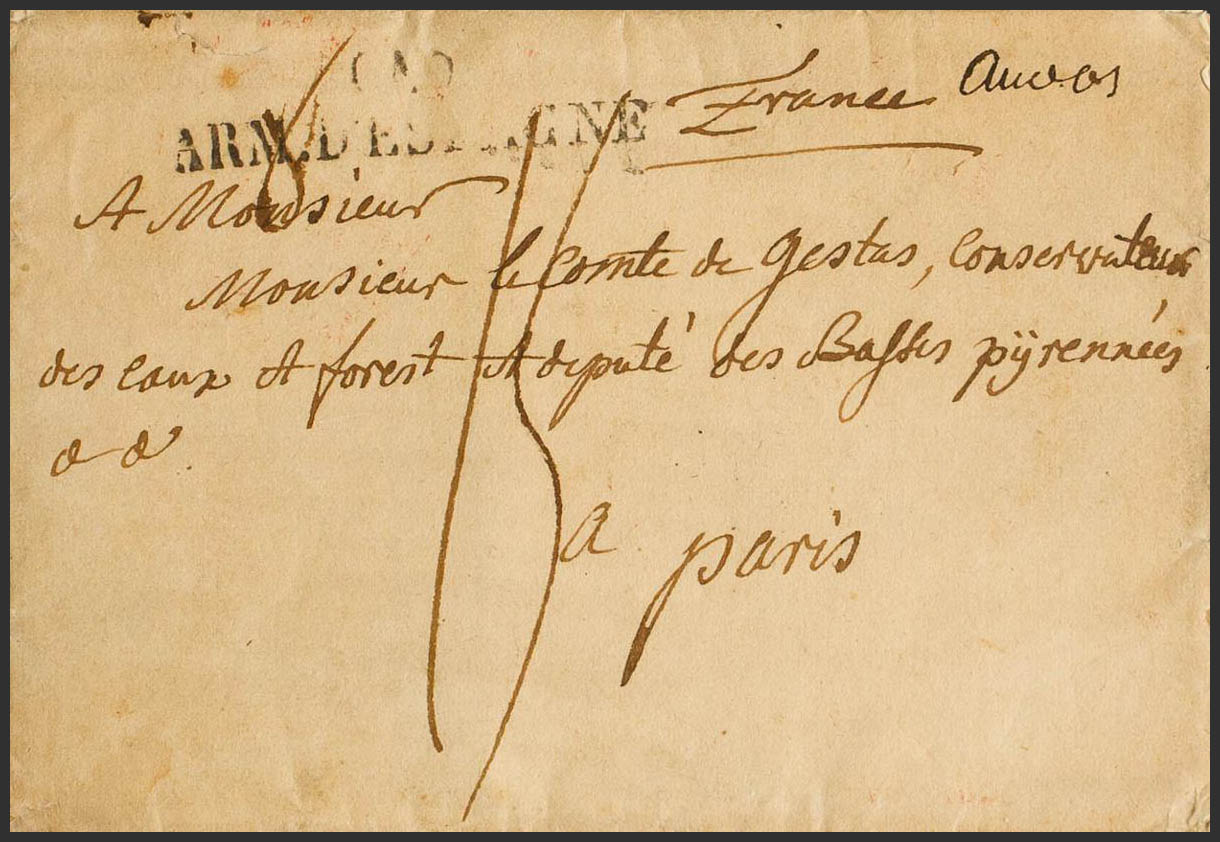 ARM. D'ESPAGNE
France
A Monsieur
Monsieur le Comte de Gestas, Conservateur
des eaux et forest et deputé des Basses pÿrennées
& &
15
a paris